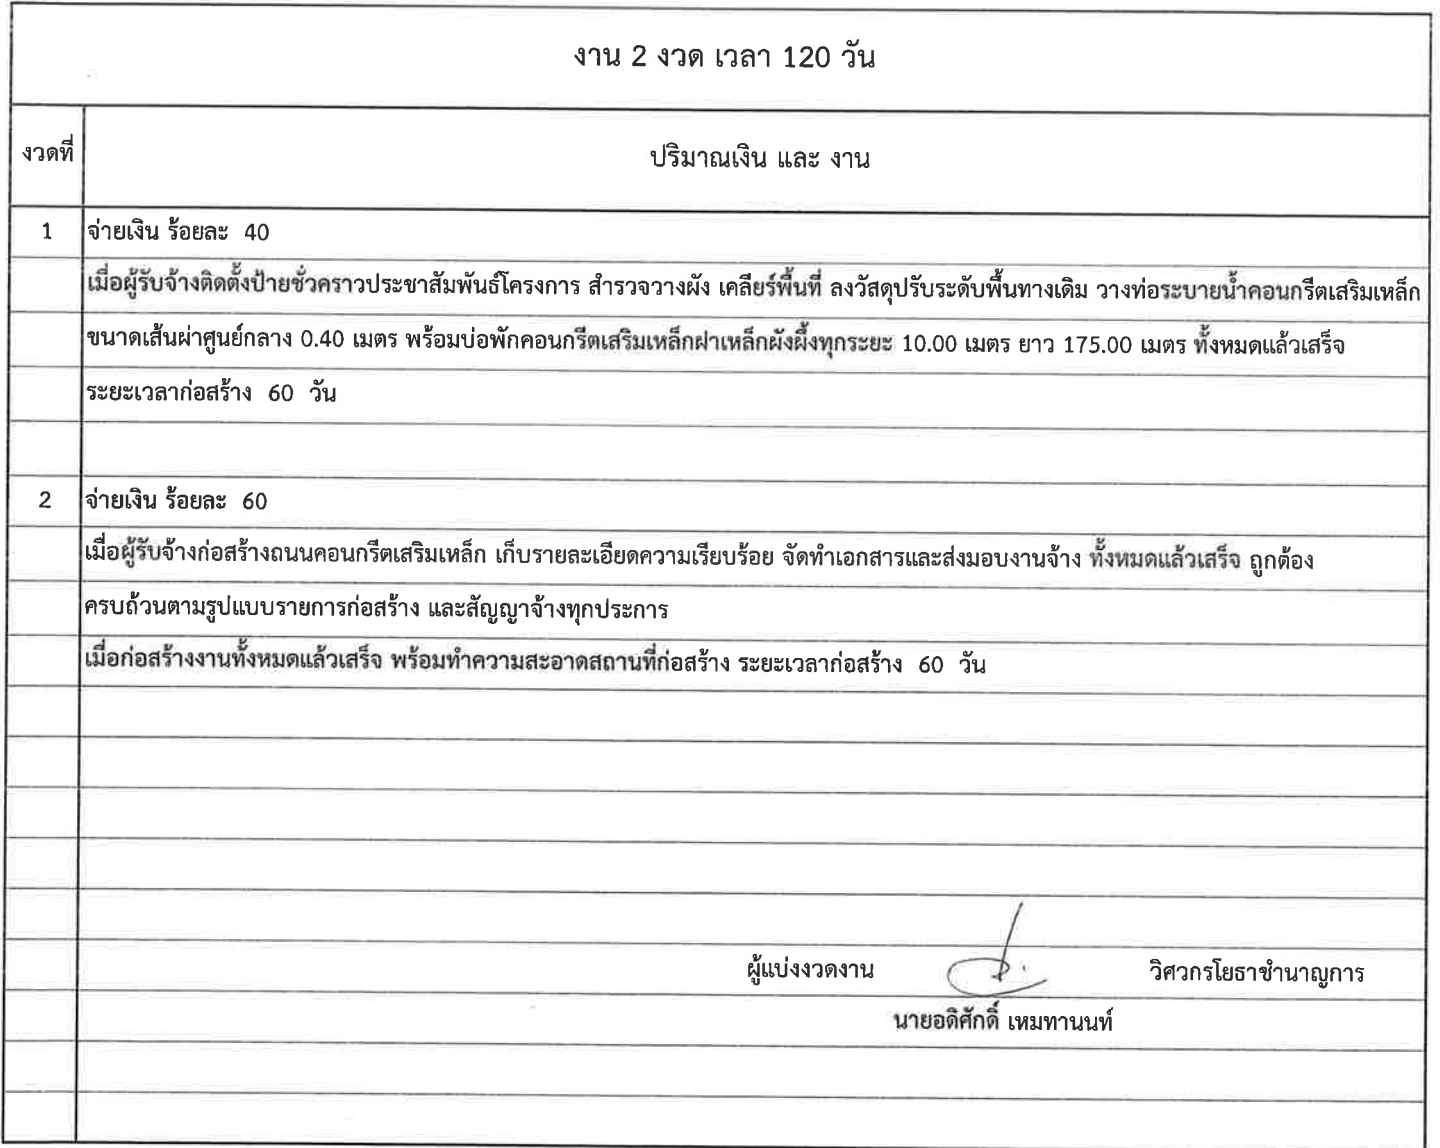 งาน 2 งวด เวลา 120 วัน
งวดที่
ปริมาณเงิน และ งาน
1 จ่ายเงิน ร้อยละ 40
เมื่อผู้รับจ้างติดตั้งป้ายชั่วคราวประชาสัมพันธ์โครงการ สำรวจวางผัง เคลียร์พื้นที่ ลงวัสดุปรับระดับพื้นทางเดิม วางท่อระบายน้ำคอนกรีตเสริมเหล็ก
ขนาดเส้นผ่าศูนย์กลาง 0.40 เมตร พร้อมบ่อพักคอนกรีตเสริมเหล็กฝาเหล็กผังผึ้งทุกระยะ 10.00 เมตร ยาว 175.00 เมตร ทั้งหมดแล้วเสร็จ
ระยะเวลาก่อสร้าง 60 วัน
2 จ่ายเงิน ร้อยละ 60
เมื่อผู้รับจ้างก่อสร้างถนนคอนกรีตเสริมเหล็ก เก็บรายละเอียดความเรียบร้อย จัดทำเอกสารและส่งมอบงานจ้าง ทั้งหมดแล้วเสร็จ ถูกต้อง
ครบถ้วนตามรูปแบบรายการก่อสร้าง และสัญญาจ้างทุกประการ
เมื่อก่อสร้างงานทั้งหมดแล้วเสร็จ พร้อมทำความสะอาดสถานที่ก่อสร้าง ระยะเวลาก่อสร้าง 60 วัน
ผู้แบ่งงวดงาน วิศวกรโยธาชำนาญการ
นายอดิศักดิ์ เหมทานนท์